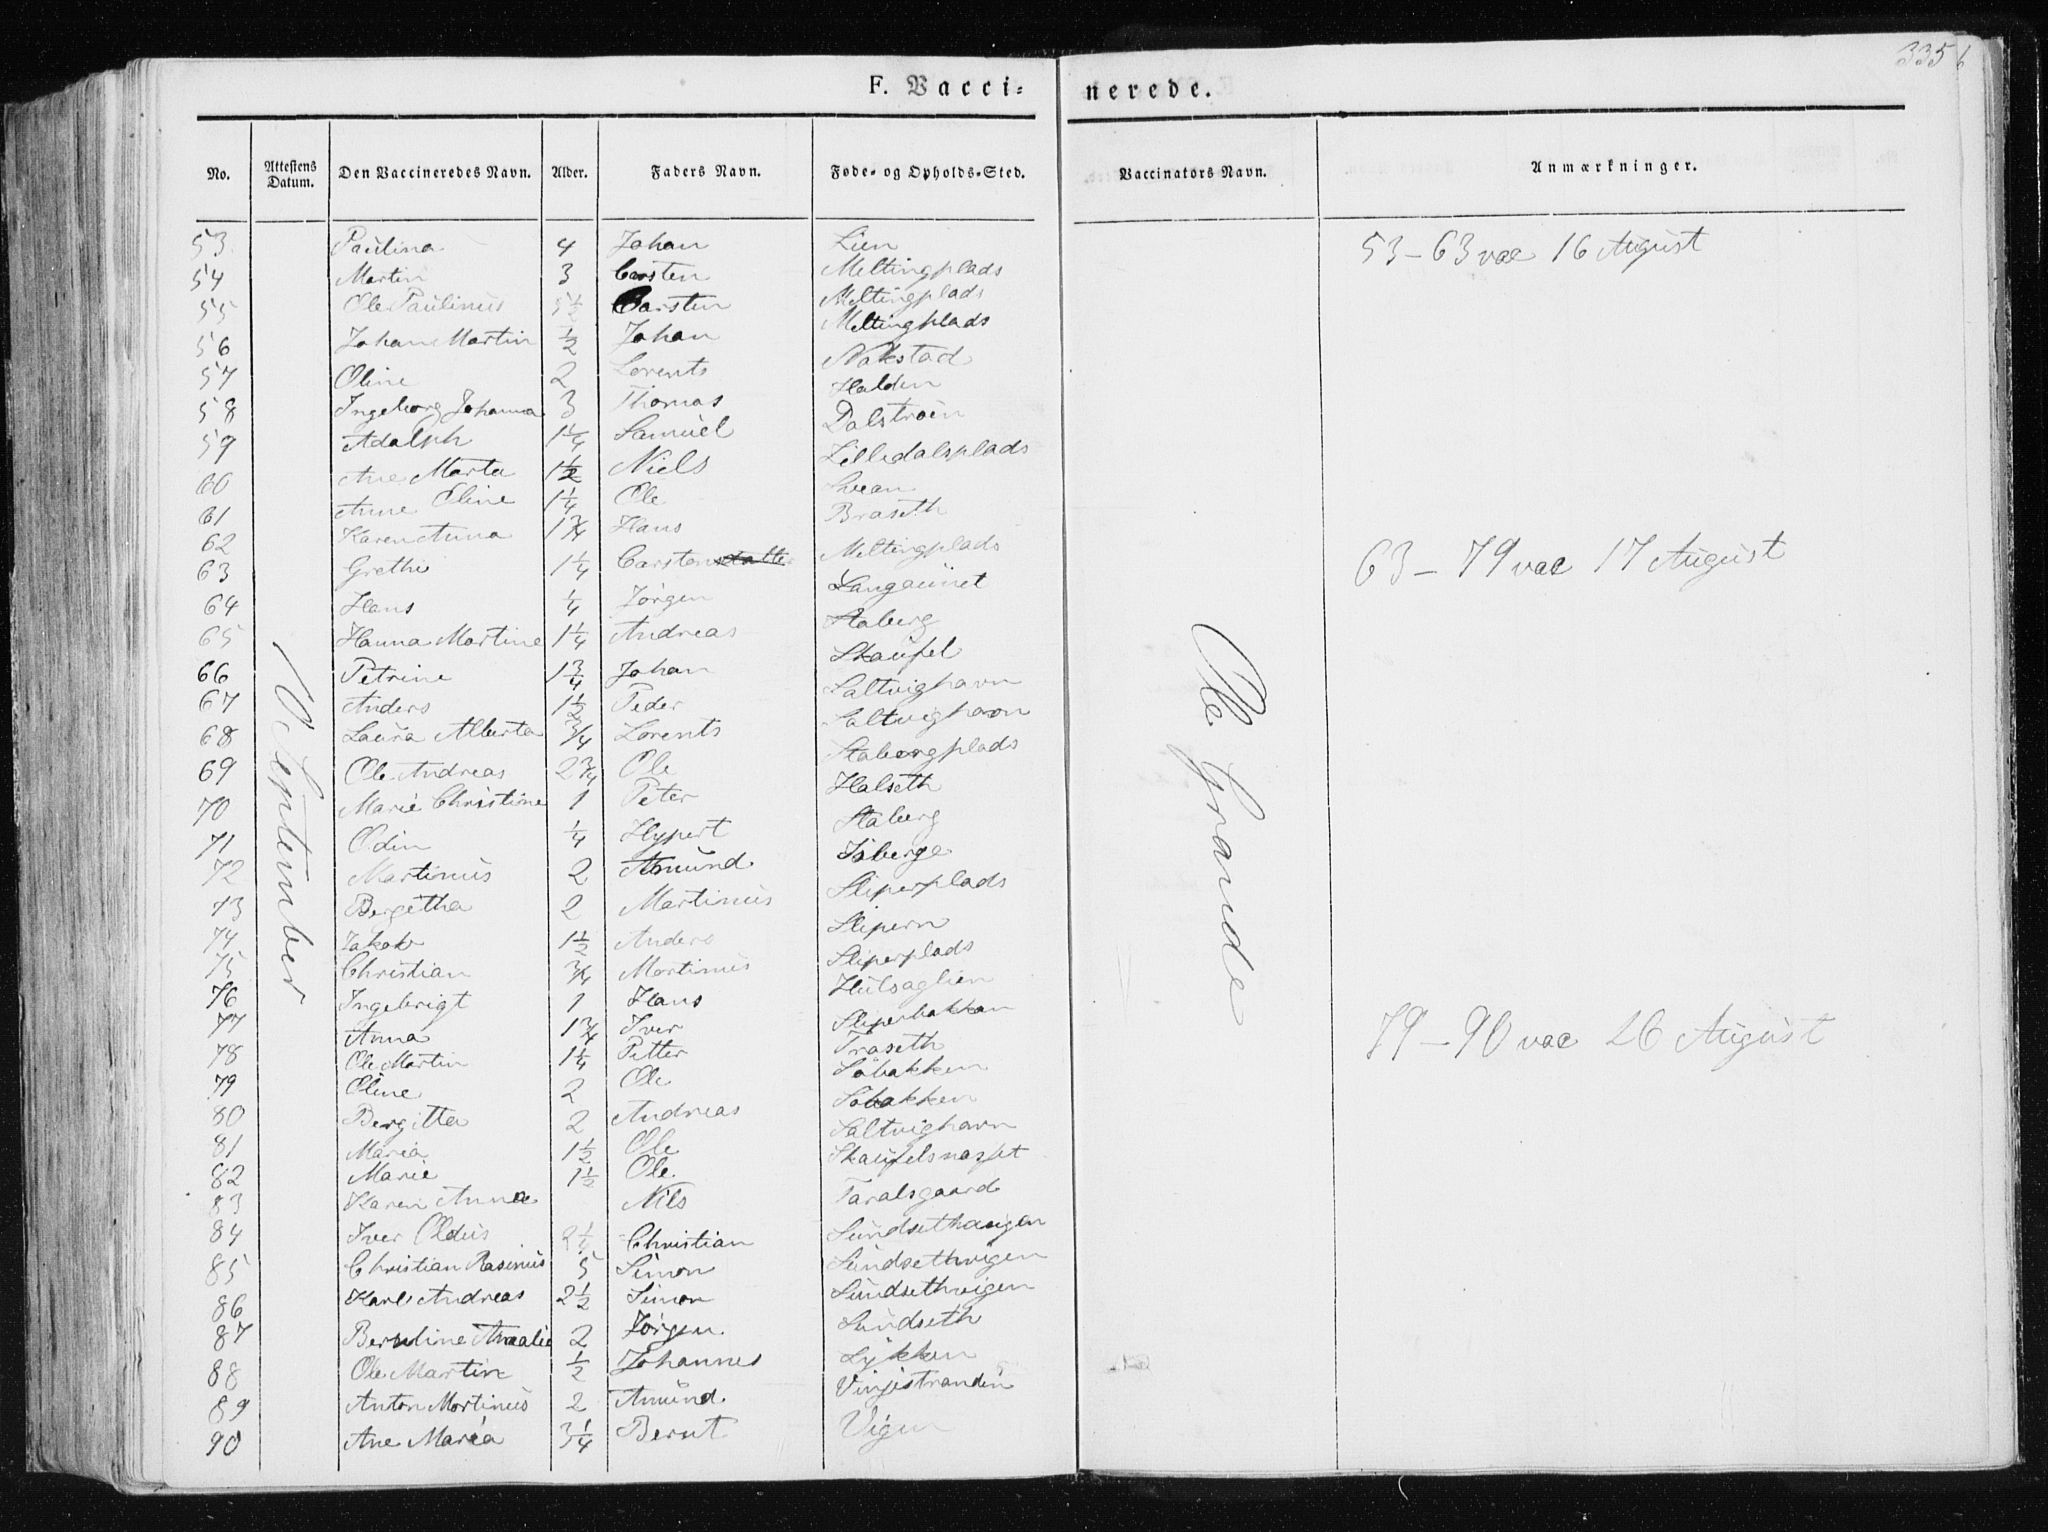 335 b
F. Vacci= nerede.
No. Attestens Datum. Den Vaccineredes Navn. Alder. Faders Navn. Føde- og Opholds-Sted. Vaccinators Navn. Anmærkninger.
10 September
Ole Grande
53 Paulina 4 Johan Lien 53-63 vac 16 August
54 Martin 3 Carsten Meltingplads
55 Ole Paulinus 5 1/2 Carsten Meltingplads
56 Johan Martin 1/2 Johan Meltingplads
57 Oline 2 Lorents Nakstad
58 Ingeborg Johanna 3 Thomas Halden
59 Adolph 1 1/4 Samuel Dalstrøen
60 Ane Marta 1 1/2 Niels Lilledalsplads
61 Anne Eline 1 1/4 Ole Svean
62 Karen Anna 1 3/4 Hans Braseth
63 Grethe 1 1/4 Carsten Meltingplads 63-79 vac 17 August
64 Hans 1/4 Jörgen Langaunet
65 Hanna Martine 1 1/4 Andreas Staberg
66 Petrine 1 3/4 Johan Skaufel
67 Anders 1 1/2 Peder Saltvighavn
68 Laura Alberta 3/4 Lorents Saltvighavn
69 Ole Andreas 2 3/4 Ole Stabergplads
70 Marie Christine 1 Peter Halseth
71 Odin 1/4 Hypert Staberg
72 Martinus 2 Amund Isberge
73 Bergitha 2 Martinus Sliperplads
74 Jakob 1 1/2 Anders Slipern
75 Christian 3/4 Martinus Sliperplads
76 Ingebrigt 1 Hans Hulsaglien
77 Anna 1 3/4 Iver Sliperbakkan
78 Ole Martin 1 1/4 Petter Traseth
79 Oline 2 Ole Söbakken 79-90 vac 26 August
80 Bergitta 2 Andreas Söbakken
81 Maria 1 1/2 Ole Saltvighavn
82 Marie 1 1/2 Ole Skaufelsnasset
83 Karen Anna Nils Taralsgaard
84 Iver Oldus 2 1/4 Christian Sundsethaugen
85 Christian Rasinus 5 Simon Sundsethvigen
86 Karl Andreas 2 1/2 Simon Sundsethvigen
87 Bernline Amalie 2 Jörgen Sundseth
88 Ole Martin 1/2 Johannes Lykken
89 Anton Mortinus 2 Amund Vinjestranden
90 Ane Maria 3 1/4 Bernt Vigen